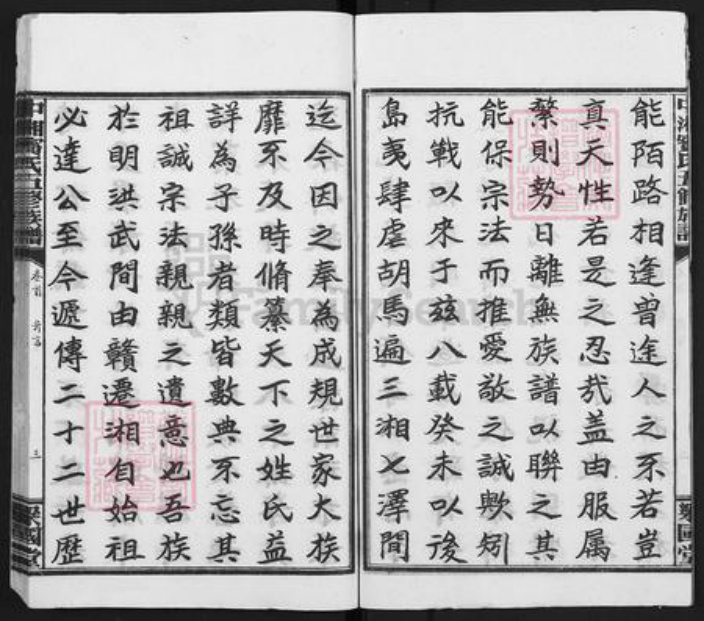 能陌路相逢曾途人之不若豈
真天性若是之忍哉盖由服属
繁則勢日離無族譜以聯之其
能保宗法而推愛敬之誠歟矧
抗戰以來于兹八載癸未以後
島夷肆虐胡馬遍三湘七澤間
迄今因之奉為成規世家大族
靡不及時脩纂天下之姓氏益
詳為子孫者類皆數典不忘其
祖誠宗法親親之遺意也吾族
於明洪武間由贛遷湘自始祖
必達公至今遞傳二十二世歷
卷首
三
FamilySearch